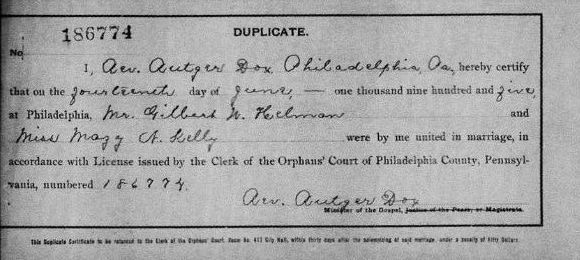 186774
DUPLICATE.
No
I, Rev. Rutger Dox, Philadelphia, Pa, hereby certify
that on the fourteenth day of June, — one thousand nine hundred and five,
at Philadelphia, Mr. Gilbert W. Helman and
Miss Mazy A. Kelly were by me united in marriage, in
accordance with License issued by the Clerk of the Orphans' Court of Philadelphia County, Pennsyl-
vania, numbered 186774.
Rev. Rutger Dox
Minister of the Gospel, Justice of the Peace, or Magistrate.
This Duplicate Certificate to be returned to the Clerk of the Orphans' Court, Room No. 417 City Hall, within thirty days after the solemnizing of said marriage, under a penalty of Fifty Dollars.